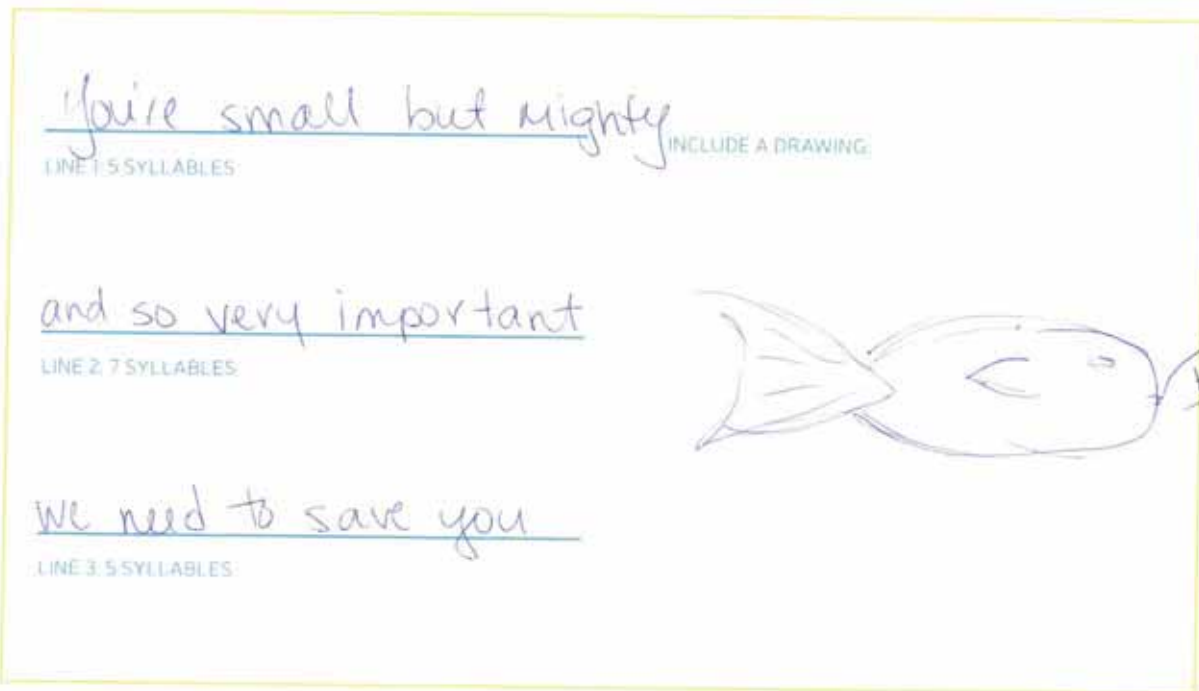 You're small but mighty
INCLUDE A DRAWING:
LINE 1: 5 SYLLABLES
and so very important
LINE 2: 7 SYLLABLES
we need to save you
LINE 3: 5 SYLLABLES